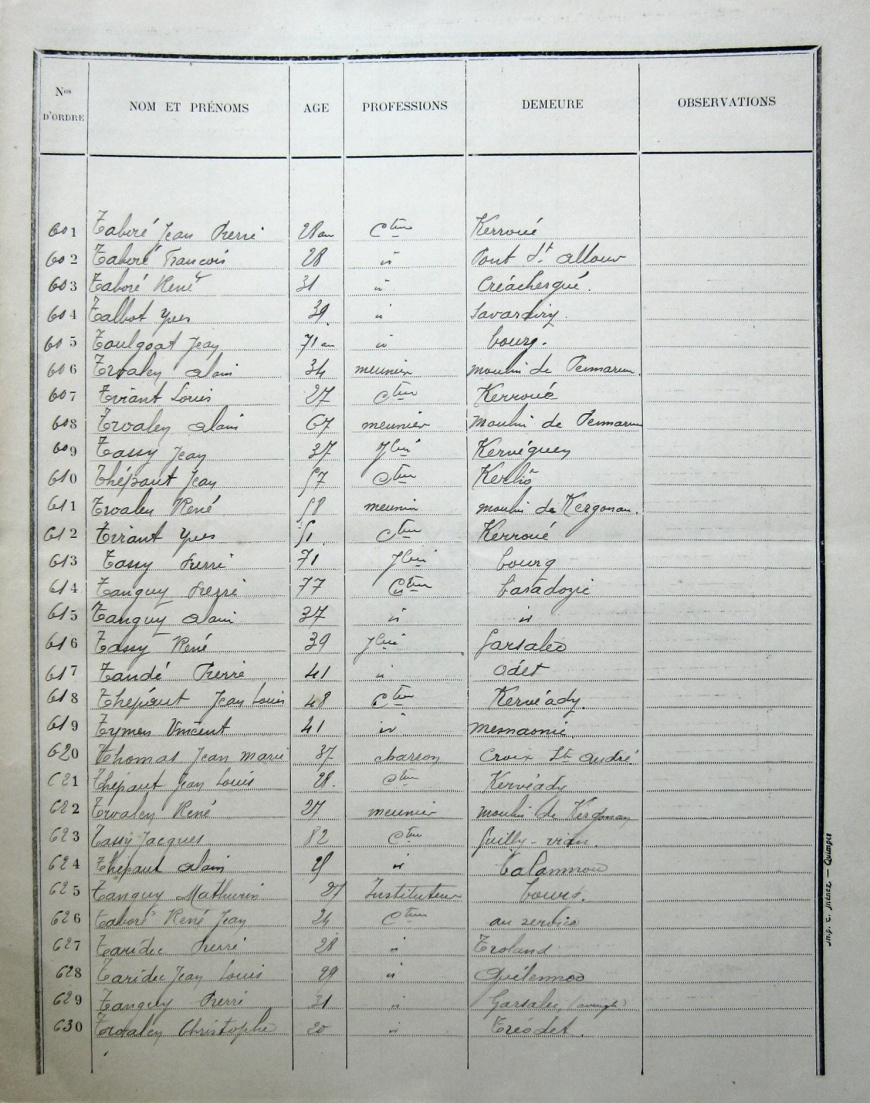 Nos D'ORDRE NOM ET PRÉNOMS AGE PROFESSIONS DEMEURE OBSERVATIONS
601 Taboré Jean Pierre 28 an Cteur Kerroué
602 Taboré Francois 28 id Pont St
603 Taboré René 31 id Créachergué.
604 Talbot Yves 39 id
605 Toulgoat Jean 71 an id bourg.
606 Trvalen Alain 34 meunier moulin de Pennarun
607 Tviant Louis 27 Cteur Kerroué
608 Trvalen Alain 67 meunier moulin de Pennarun
609 Tassy Jean 37 Jlier Kervéguen
610 Thépaut Jean 57 Cteur
611 Trvalen René 58 meunier moulin de Kergonan.
612 Tviant Yves 51. Cteur Kerroué
613 Tassy Pierre 71 Jlier bourg
614 Tanguy Pierre 77 Cteur
615 Tanguy Alain 37 id id
616 Tassy René 39 Jlier Garsalec
617 Tandé Pierre 41 id Odet
618 Thépaut Jean Louis 48 Cteur Kervéady.
619 Tymen Vincent 41 id
620 Thomas Jean Marie 37 charron Croix St André
621 Thépaut Jean Louis 28. Cteur Kervéady
622 Trvalen René 27 meunier moulin de Kergonan
623 Tassy Jacques 82 Cteur
624 Thépaut Alain id
625 Tanguy Mathurin 27 Instituteur bourg.
626 Taboré René Jean 24 Cteur au service
627 Taridec Pierre 28 id Troland
628 Taridec Jean Louis 29 id Quélennec
629 Tanguy Pierre 31 id Garsalec, (aveugle)
630 Trvalen Christophe 20 id Tréodet.
Imp. — Quimper